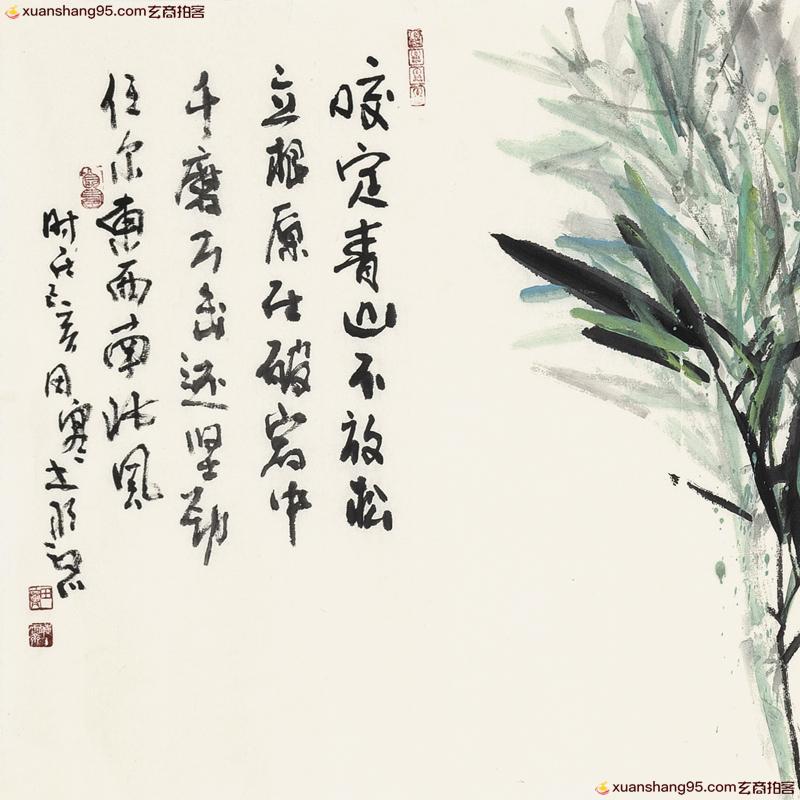 xuanshang95.com玄商拍客
咬定青山不放松
立根原在破岩中
千磨万击还坚劲
任尔東西南北風
时在己亥田寒
xuanshang95.com玄商拍客